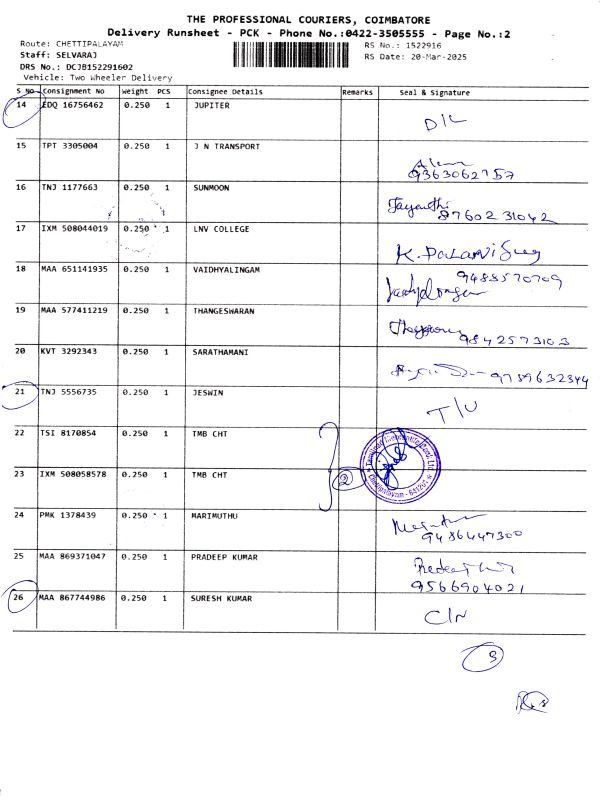 THE PROFESSIONAL COURIERS, COIMBATORE
Delivery Runsheet - PCK - Phone No.:0422-3505555 - Page No.:2
Route: CHETTIPALAYAM RS No.: 1522916
Staff: SELVARAJ RS Date: 20-Mar-2025
DRS No.: DCJB152291602
Vehicle: Two Wheeler Delivery
S No Consignment No Weight PCS Consignee Details Remarks Seal & Signature
14 EDQ 16756462 0.250 1 JUPITER D/L
15 TPT 3305004 0.250 1 J N TRANSPORT
9363062757
16 TNJ 1177663 0.250 1 SUNMOON Jayanthi
9760231042
17 IXM 508044019 0.250 1 LNV COLLEGE
18 MAA 651141935 0.250 1 VAIDHYALINGAM 9488570709
19 MAA 577411219 0.250 1 THANGESWARAN
9842573103
20 KVT 3292343 0.250 1 SARATHAMANI 9789632344
21 TNJ 5556735 0.250 1 JESWIN T/U
22 TSI 8170854 0.250 1 TMB CHT
23 IXM 508058578 0.250 1 TMB CHT 2
24 PMK 1378439 0.250 1 MARIMUTHU
9486447300
25 MAA 869371047 0.250 1 PRADEEP KUMAR
9566904021
26 MAA 867744986 0.250 1 SURESH KUMAR C/N